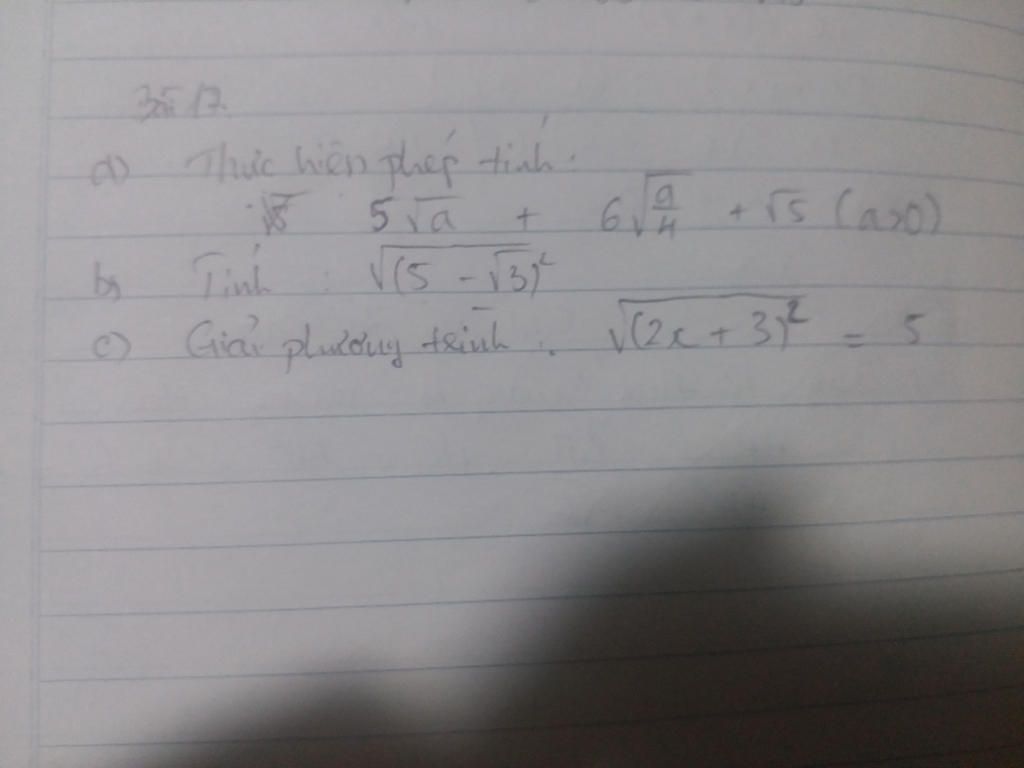 Bài 17.
a) Thực hiện phép tính:
5√a + 6√(a/4) + √5 (a>0)
b) Tính : √(5 - √3)²
c) Giải phương trình : √(2x + 3)² = 5